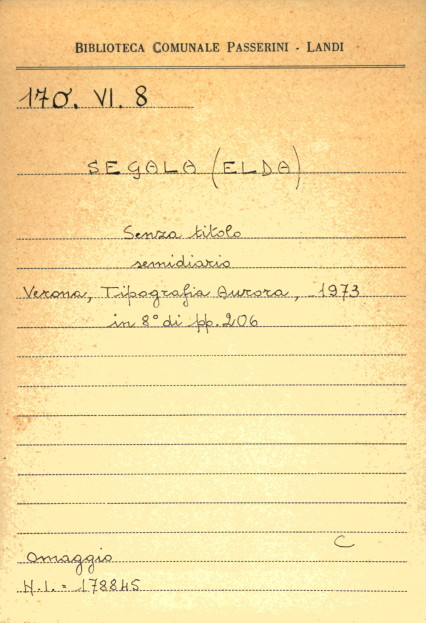 BIBLIOTECA COMUNALE PASSERINI - LANDI
170. VI. 8
SEGALA (ELDA)
Senza titolo
semidiario
Verona, Tipografia Aurora, 1973
in 8° di pp. 206
C
Omaggio
N.I. = 178845